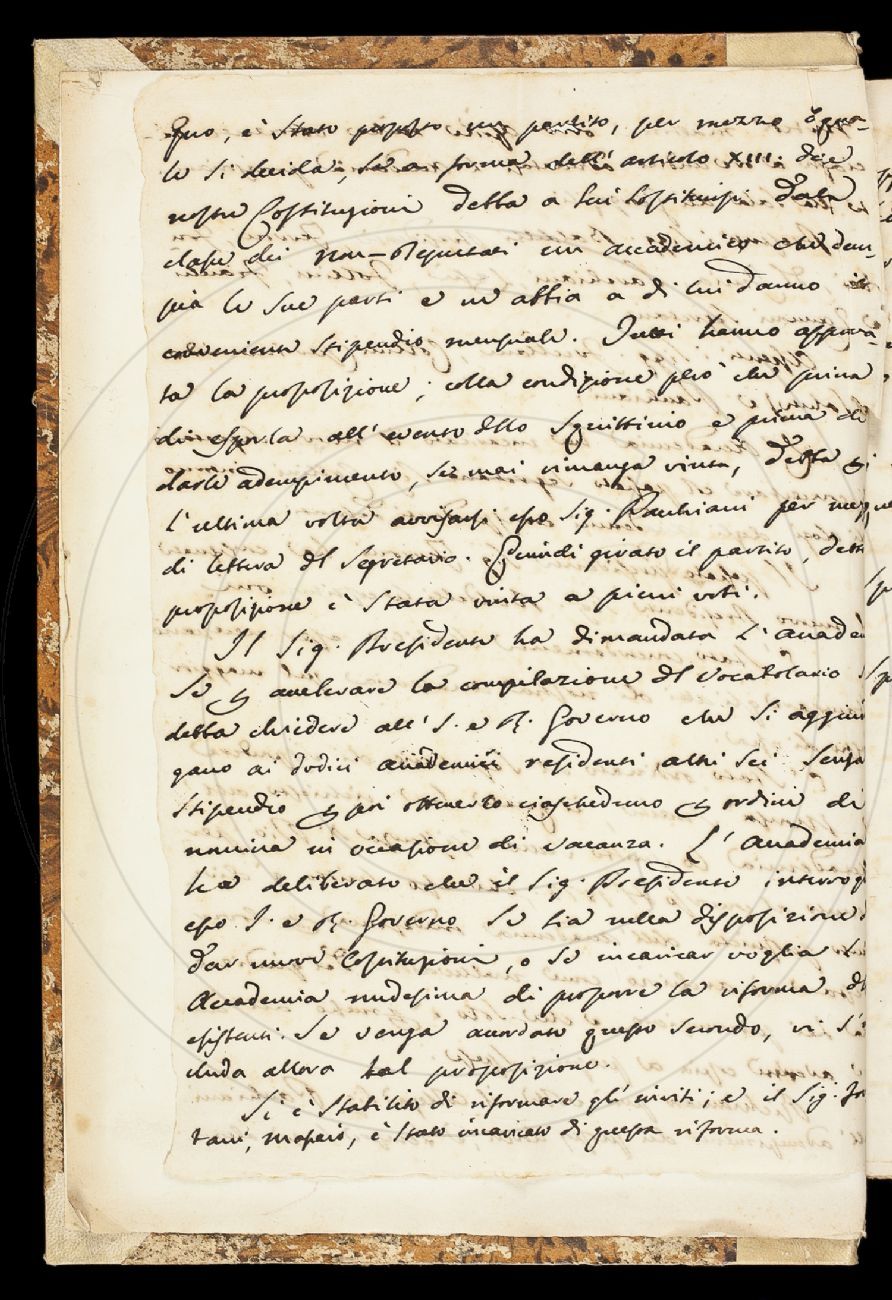 quo, è stato proposto un partito, per mezzo d qua-
le si decida, se a forma dell' articolo XIII. dlle
nostre Costituzioni debba a lui sostituirsi dalla
classe dei non-stipendiati un accademico che adem-
pia le sue parti e ne abbia a di lui danno il
conveniente stipendio mensuale. Tutti hanno approva-
ta la proposizione; colla condizione però che prima
di esporla all' evento dllo squittinio e prima di
darle adempimento, se mai rimanga vinta, debba
l' ultima volta avvisarsi esso Sig. per mez
di lettera dl Segretario. Quindi girato il partito, detta
proposizione è stata vinta a pieni voti.
Il Sig. Presidente ha dimandato l' accade
se p accelerare la compilazione dl vocabolario
debba chiedere all' I. e R. Governo che si aggiun
gano ai dodici accademici residenti altri sei senza
stipendio p poi ottenerlo ciascheduno p ordine di
nomina in occasione di vacanza. L' Accademia
ha deliberato che il Sig. Presidente interrog
esso I. e R. Governo se sia nella disposizione
dar nuove Costituzioni, o se incaricar voglia l
Accademia medesima di proporre la riforma dl
esistenti. Se venga accordato questo secondo, vi s' in
cluda allora tal proposizione.
Si è stabilito di riformare gl' inviti; e il Sig.
tani, massaio, è stato incaricato di questa riforma.